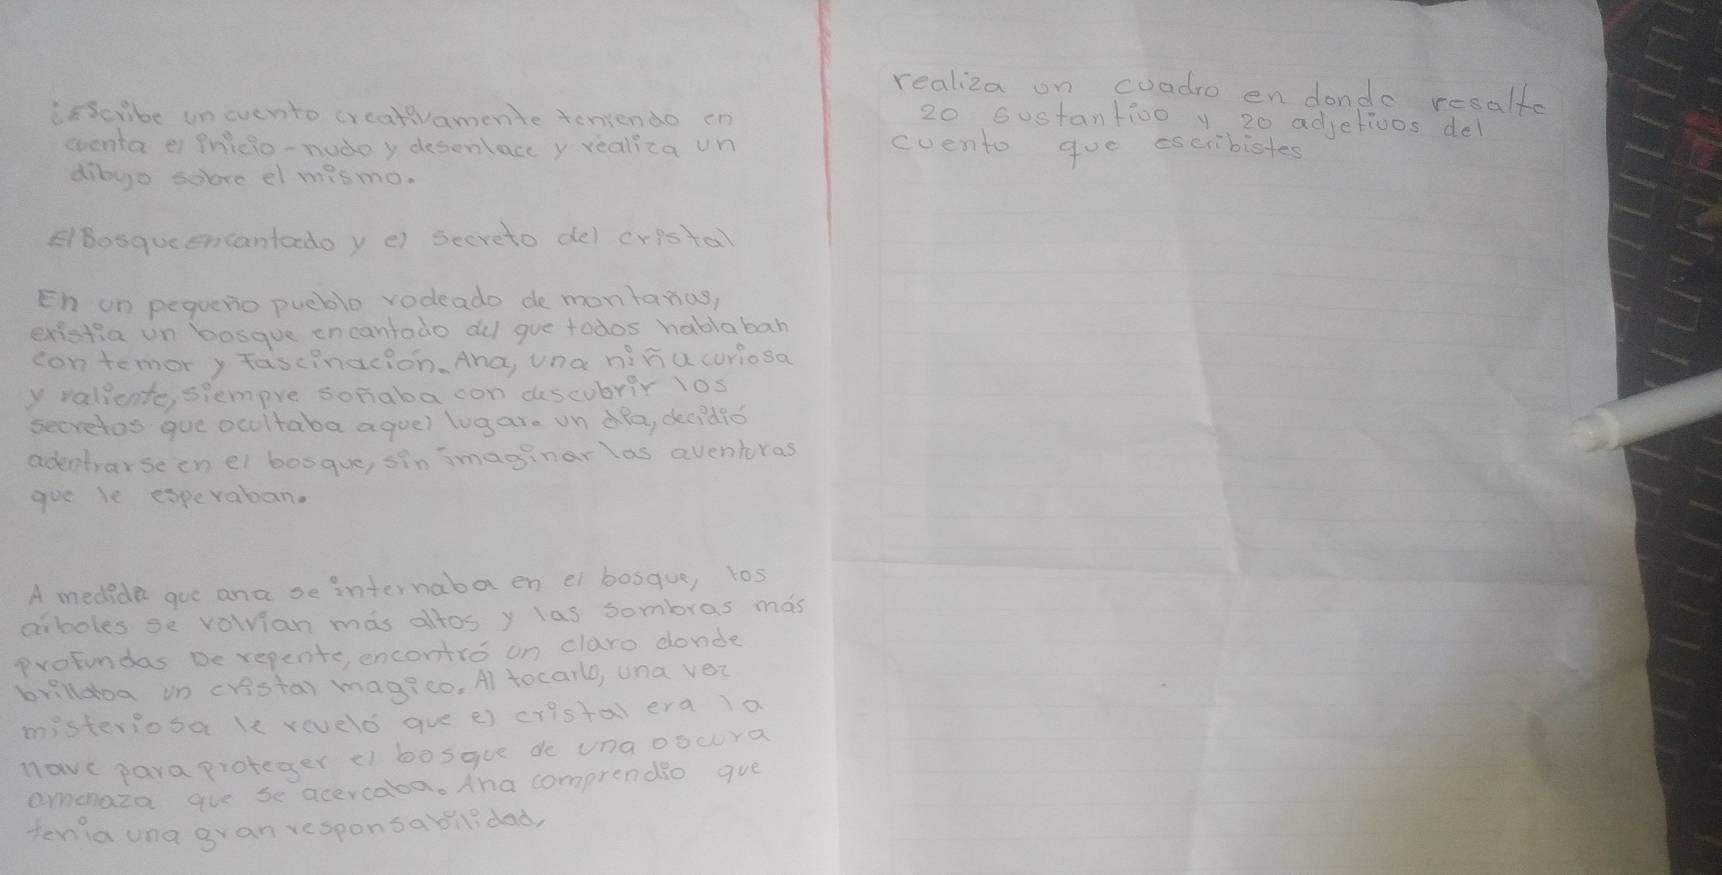 escribe un cuento creativamente teniendo en
cuenta el inicio - nudo y desenlace y realiza un
dibujo sobre el mismo.
El Bosque Encantado y el secreto del cristal
En un pequeño pueblo rodeado de montañas,
existia un bosque encantado del que todos hablaban
con temor y Fascinación. Ana, una niña curiosa
y valiente, siempre soñaba con descubrir los
secretos que ocultaba aquel lugar. un día, decidió
adentrarse en el bosque, sin imaginar las aventuras
que le esperaban.
A medida que ana se internaba en el bosque, los
arboles se volvian más altos y las sombras más
profundas De repente, encontró un claro donde
brillaba un cristal magico. Al tocarlo, una voz
misteriosa le reveló que el cristal era la
llave para proteger el bosque de una oscura
amenaza que se acercaba. Ana comprendio que
tenia una gran responsabilidad,
realiza un cuadro en donde resalte
20 sustantivo y 20 adjetivos del
cuento que escribistes